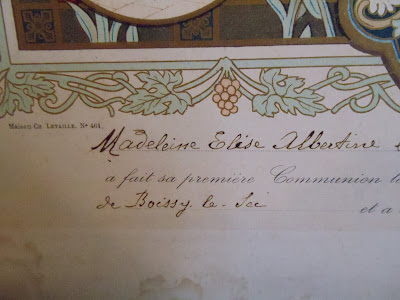 MAISON CH. LETAILLE, Nº 461.
Madeleine Elise Albertine
a fait sa première Communion le
de Boissy-le-Sec et a